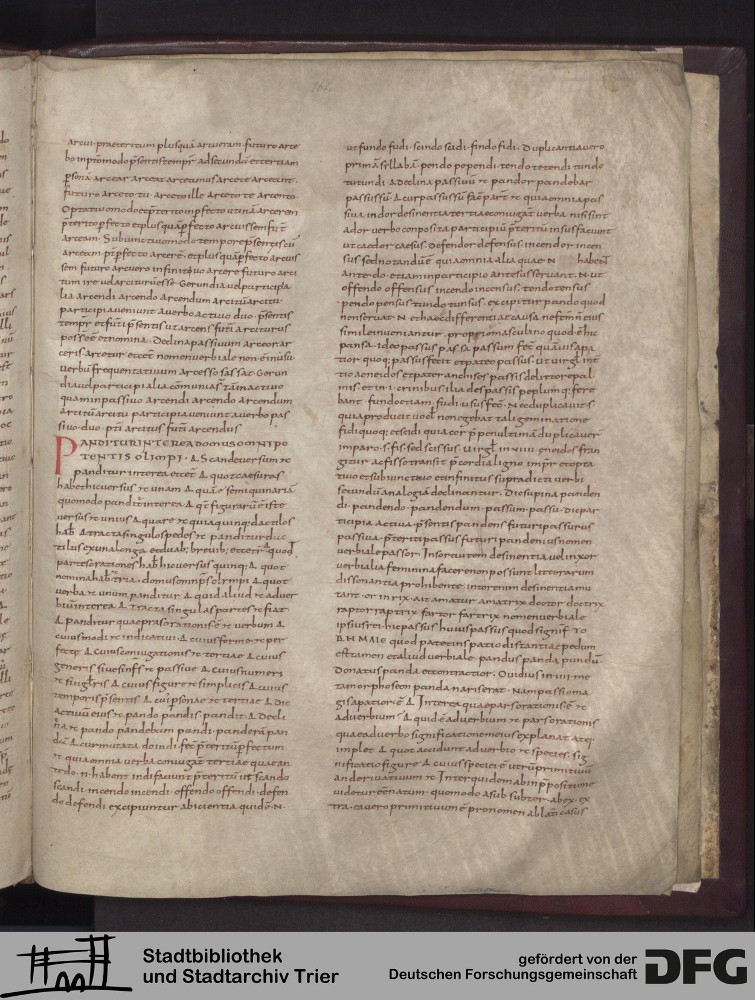 arcui. praeteritum plusquā arcueram. futuro arce
bo inpromodo psentis tempr ad secundā et tertiam
psonā arce arceat arceamus arcete arceant.
futuro arceto tu. arceto ille arceto te arcento
Optatiuo modo et pterito inpfecto utinā arcerem
pterito pfecto et plusquāpfecto arcuissem fut
arceam. Subiunctiuo modo tempore psentis cū
arceam. ptr pfecto arcerē. et plusquāpfecto arcuis
sem futuro arcuero infinitiuo arcere futuro arci
tum ire uel arciturū esse. Gerundia uel participia
lia arcendi arcendo arcendum arcitū arcitu.
participia ueniunt a uerbo actiuo duo. psentis
tempr et futuri psentis ut arcens futuri arciturus
posso
ceris arcetur
uerbū frequentatiuum arcesso
dia uel participialia cōmunia
quam in passiuo arcendi arcendo arcendum
arcitū arcitu participia ueniunt a uerbo pas
siuo. duo. ptri arcitus futuri arcendus
PANDITUR INTEREA DOMUS OMNIPO
TENTIS OLIMPI. Δ Scande uersum
panditur interea Δ quot caesuras
habet hic uersus unam Δ quā semiquinariā
quomodo panditur interea Δ qt figurarū ē iste
uersus unius Δ quare quia quinq; dactilos
hab Δ tracta singulos pedes panditur duc
tilus ex una longa et duab; breuib;
partes orationes hab hic uersus quinq; Δ quot
nomina hab tria. domus omnips olympi Δ quot
uerba unum panditur Δ quid aliud aduer
biū interea Δ tracta singulas partes fiat
Δ panditur quae pars orationis ē uerbum Δ
cuius modi indicatiui Δ cuius formae per
fectę Δ cuius coniugationis tertiae Δ cuius
generis siue signif passiuae Δ cuius numeri
singlris Δ cuius figurae simplicis Δ cuius
temporis psentis Δ cui psonae tertiae Δ Dic
actiuū eius pando pandis pandit Δ Decli
na pando pandebam pandi. panderā pan
dā Δ cur mutata do in di. fec pteritū pfectum
quia omnia uerba coniugat tertiae quae an
te do. n. habent in di faciunt pteritū ut scando
scandi. incendo incendi. offendo offendi. defen
do defendi excipiuntur abicientia quidē. N.
ut fundo fudi. scindo scidi. findo fidi. Duplicantia uero
primā syllabā. pendo pependi. tendo tetendi tundo
tutundi. Δ Declina passiuū pandor pandebar
passus sū Δ cur passus sū faē part quia omnia pas
siua in dor desinentia tertiae coniugat uerba nisi sint
a dor uerbo conposita participiū pteritū in sus faciunt
ut caedor caesus. defendor defensus. incendor incen
sus sed notandū quia omnia alia quae N habent
ante do etiam in participio ante sus seruant N. ut
offendo offensus incendo incensus. tendo tensus
pendo pensus tundo tunsus. excipitur pando quod
non seruat N et haec differentiae causa ne femīn eius
simile inueniantur. proprio masculino quod ē hic
pansa. ideo passus passa passum
tior quoq; passus fecit et pateo passus. ut uirgl in
tio aeneidos et pater anchises passis de littore pal
mis. et in .i. crinibus iliades passis peplumq; fere
bant. fundo etiam fudi. fusus N duplicauit.s.
quia producit uocal non egebat tali geminatione
fidi quoq; et scidi quia cor p penultimā duplicauer
inparo .s. fis. sed scissus uirgl in uiiii. eneidos fran
gitur ac fisso transit p cordia ligno impr et opta
tiuo et subiunctiuo et infinitus supra dicti uerbi
secundū analogiā declinantur. Dic supina panden
di. pandendo. pandendum. passum. passu. Dic par
ticipia actiua psentis pandens futuri passurus
passiua. pteriti passus futuri pandendus nomen
uerbiale passor. In sor autem desinentia uel in xor
uerbialia feminina facere non possunt litterarum
dissonantia prohibente. in tor enim desinentia mu
tant. or in rix. ait amatur amatrix doctor doctrix
raptor raptrix fartor fartrix nomen uerbiale
ipsius rei hic passus huius passus quod signif TO
BHMAIE quod patet in spatio distantiae pedum
est tamen et aliud uerbiale. pandus panda pandū
Donatus panda et contractior. Ouidius in iiii. me
tamorphoseon panda naris erat. Nam passio ma
gis a patior ē Δ Interea quae pars orationis ē
aduerbium Δ quid ē aduerbium pars orationis
quae aduerbo significationem eius explanat atq;
implet Δ quot accidunt aduerbio species. sig
nificatio figurae Δ cuius speciei ē utrū primitiuū
an deriuatiuum Inter quidem ab in ppositione
uidetur ēē natum. quomodo a sub subter. ab ex. ex
tra. ea uero primitiuum ē pronomen ablati casus
Stadtbibliothek
und Stadtarchiv Trier
gefördert von der
Deutschen Forschungsgemeinschaft
DFG